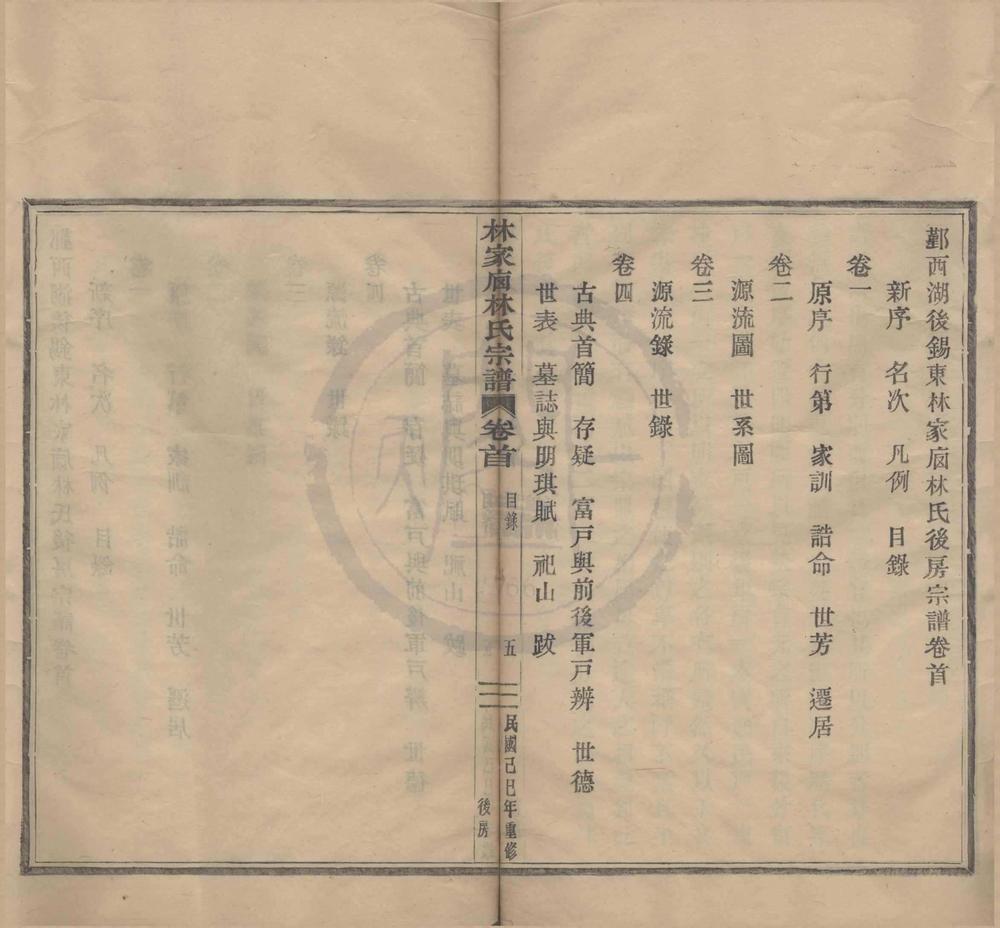 鄞西湖後錫東林家㡴林氏後房宗譜卷首
新序　名次　凡例　目錄
卷一
原序　行第　家訓　誥命　世芳　遷居
卷二
源流圖　世系圖
卷三
源流錄　世錄
卷四
古典首簡　存疑　富戸與前後軍戸辨　世德
世表　墓誌與明琪賦　祀山　跋
林家㡴林氏宗譜　卷首　目錄　五　民國己巳年重修
後房